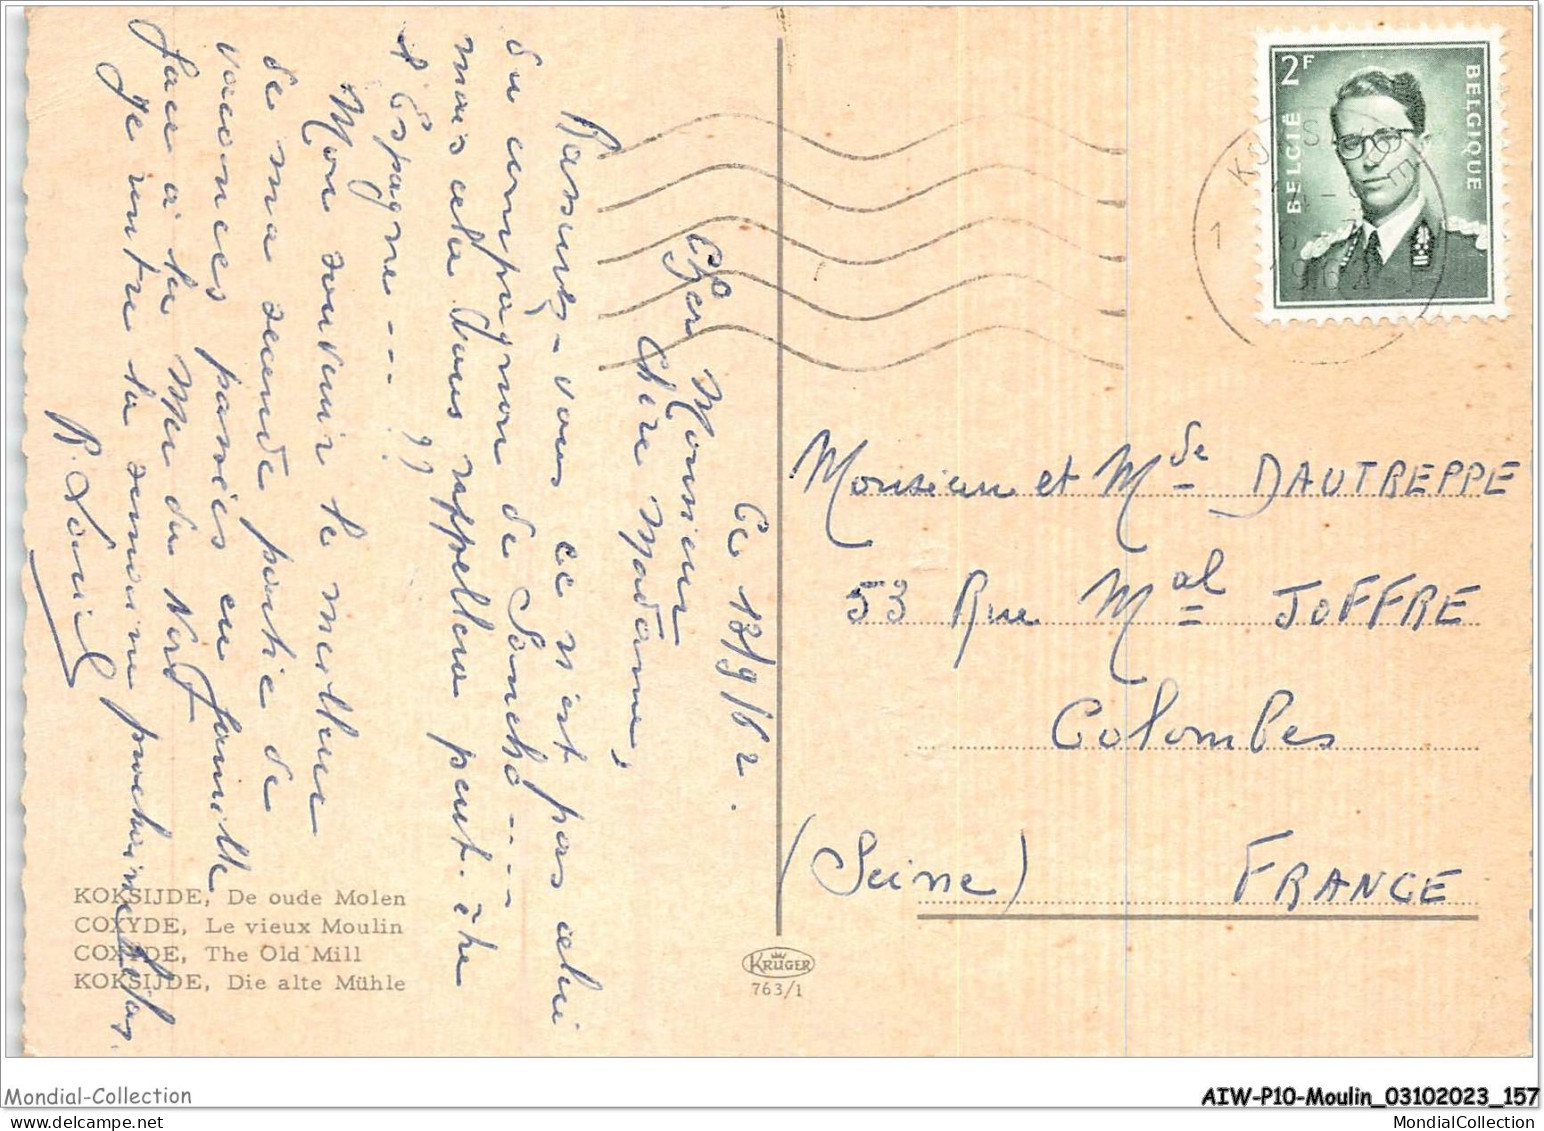 Ce 18/9/62.
Cher Monsieur
Chère Madame,
Rassurez-vous ce n'est pas celui
du compagnon de Sancho----
mais cela vous rappellera peut-être
l'Espagne --- ??
Mon souvenir le meilleur
de ma seconde partie de
vacances passées en famille
face à la Mer du Nord
Je rentre la semaine prochaine
R. Louis
KOKSIJDE, De oude Molen
COXYDE, Le vieux Moulin
COXYDE, The Old Mill
KOKSIJDE, Die alte Mühle
KRÜGER
763/1
2F
BELGIË
BELGIQUE
Monsieur et Mde DAUTREPPE
53 Rue Mal JOFFRE
Colombes
(Seine) FRANCE
Mondial-Collection
AIW-P10-Moulin_03102023_157
MondialCollection